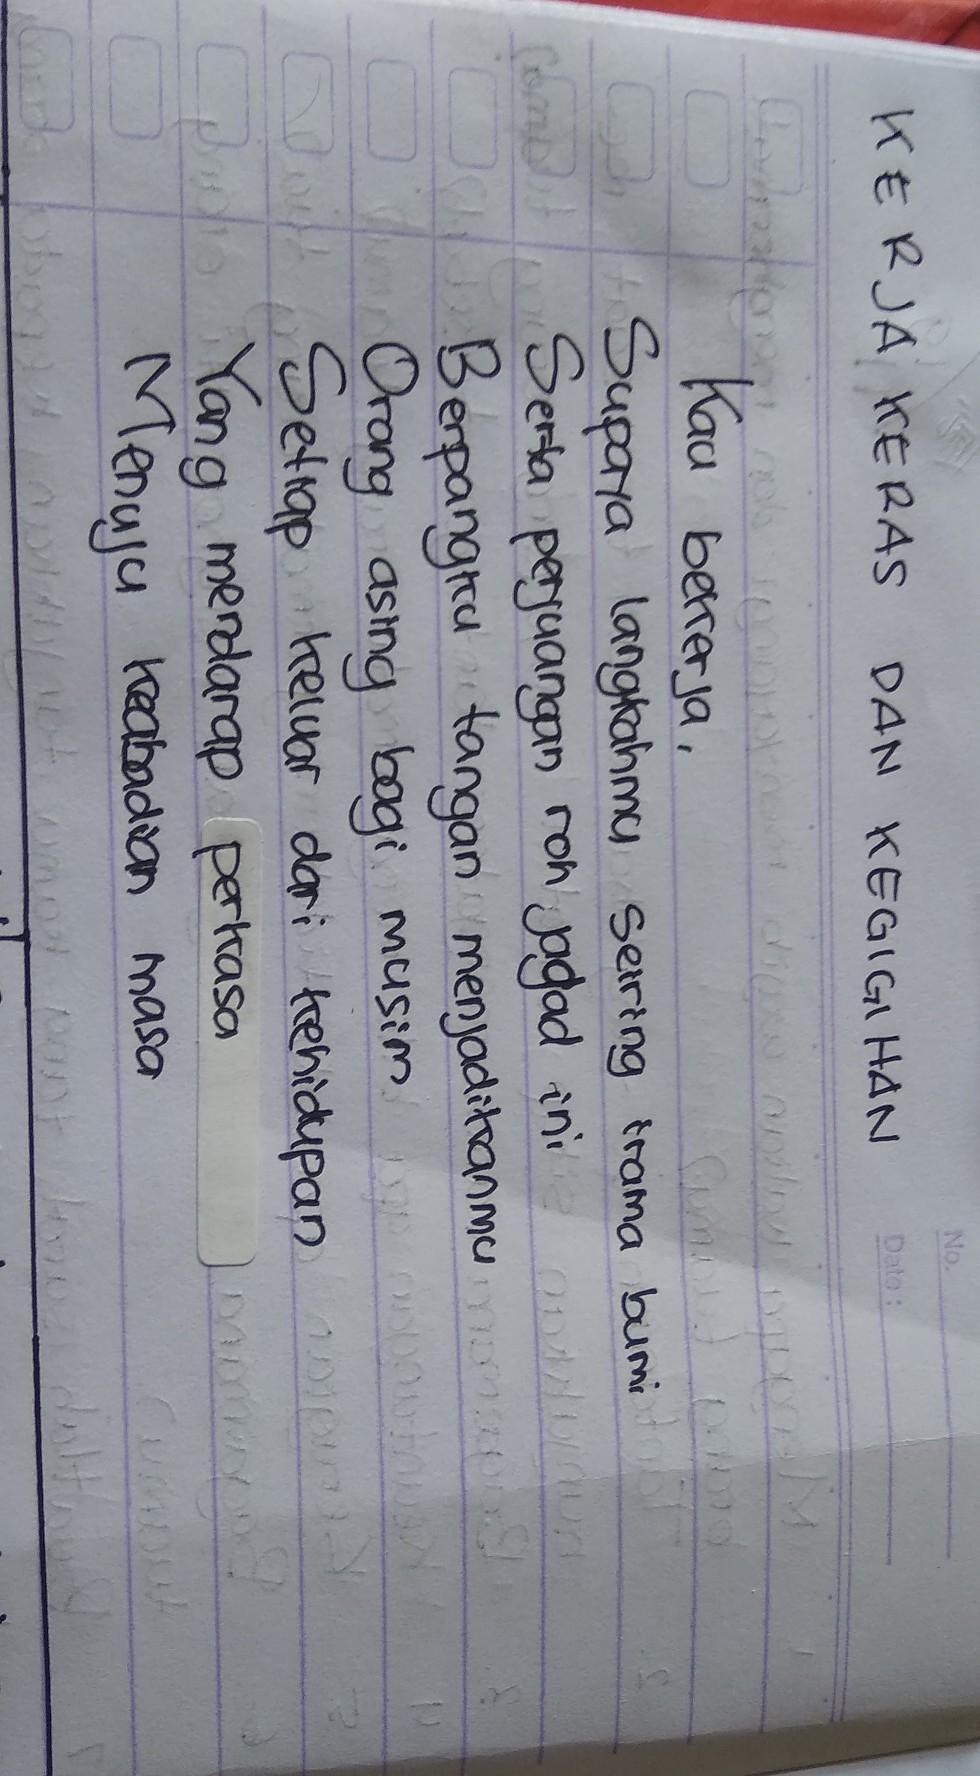 No.
Date:
KERJA KERAS DAN KEGIGIHAN
Kau bekerja,
Supaya langkahmu seiring irama bumi
Serta perjuangan roh jagad ini
Berpangku tangan menjadikanmu
Orang asing bagi musim
Setiap keluar dari kehidupan
Yang mendarap perkasa
Menuju keabadian masa